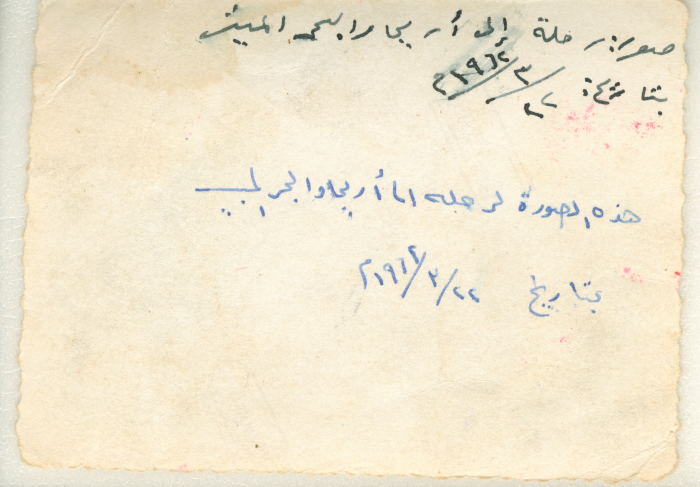 صور: رحلة إلى أريحا والبحر الميت
بتاريخ: ٢٢/٣/١٩٦٢م
هذه الصورة لرحلة الى أريحا والبحر الميت
بتاريخ ٢٢/٣/١٩٦٢م